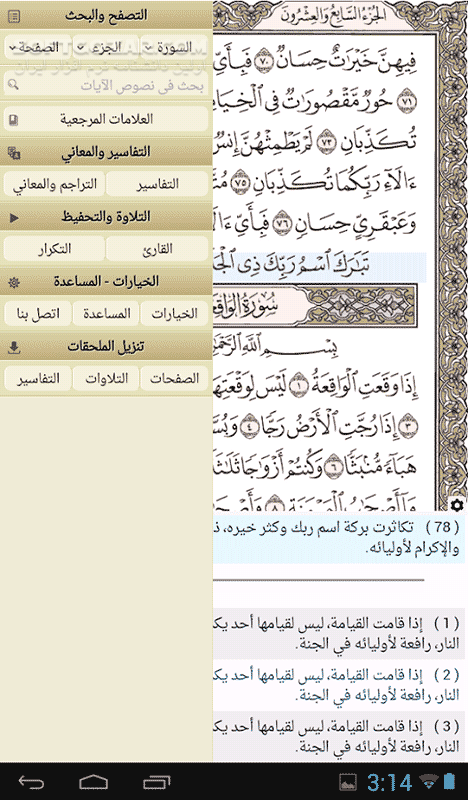 الجزء السابع والعشرون
فِيهِنَّ خَيْرَاتٌ حِسَانٌ ٧٠ فَبِأَيِّ
٧١ حُورٌ مَّقْصُورَاتٌ فِي الْخِيَامِ
تُكَذِّبَانِ ٧٣ لَمْ يَطْمِثْهُنَّ إِنسٌ
ءَالَاءِ رَبِّكُمَا تُكَذِّبَانِ ٧٥
وَعَبْقَرِيٍّ حِسَانٍ ٧٦ فَبِأَيِّ ءَالَا
تَبَارَكَ اسْمُ رَبِّكَ ذِي الْجَ
سُورَةُ الْوَاقِعَ
بِسْمِ اللَّهِ الرَّحْمَ
إِذَا وَقَعَتِ الْوَاقِعَةُ ١ لَيْسَ لِوَقْعَتِهَا
٣ إِذَا رُجَّتِ الْأَرْضُ رَجًّا ٤
هَبَاءً مُّنبَثًّا ٦ وَكُنتُمْ أَزْوَاجًا ثَلَاثَ
(78) تكاثرت بركة اسم ربك وكثر خيره، ذ
والإكرام لأوليائه.
(1) إذا قامت القيامة، ليس لقيامها أحد يك
النار، رافعة لأوليائه في الجنة.
(2) إذا قامت القيامة، ليس لقيامها أحد يك
النار، رافعة لأوليائه في الجنة.
(3) إذا قامت القيامة، ليس لقيامها أحد يك
النار، رافعة لأوليائه في الجنة.
التصفح والبحث
السورة الجزء الصفحة
بحث في نصوص الآيات
العلامات المرجعية
التفاسير والمعاني
التفاسير التراجم والمعاني
التلاوة والتحفيظ
القارئ التكرار
الخيارات - المساعدة
الخيارات المساعدة اتصل بنا
تنزيل الملحقات
الصفحات التلاوات التفاسير
3:14